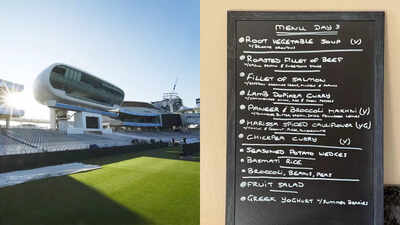 MENU DAY 3
ROOT VEGETABLE SOUP (V)
ROASTED FILLET OF BEEF
FILLET OF SALMON
LAMB DOPIAZA CURRY
PANEER & BROCCOLI MAKHNI (V)
HARISSA SPICED CAULIFLOWER (VG)
CHICKPEA CURRY (V)
SEASONED POTATO WEDGES
BASMATI RICE
BROCCOLI, BEANS, PEAS
FRUIT SALAD
GREEK YOGHURT W/SUMMER BERRIES